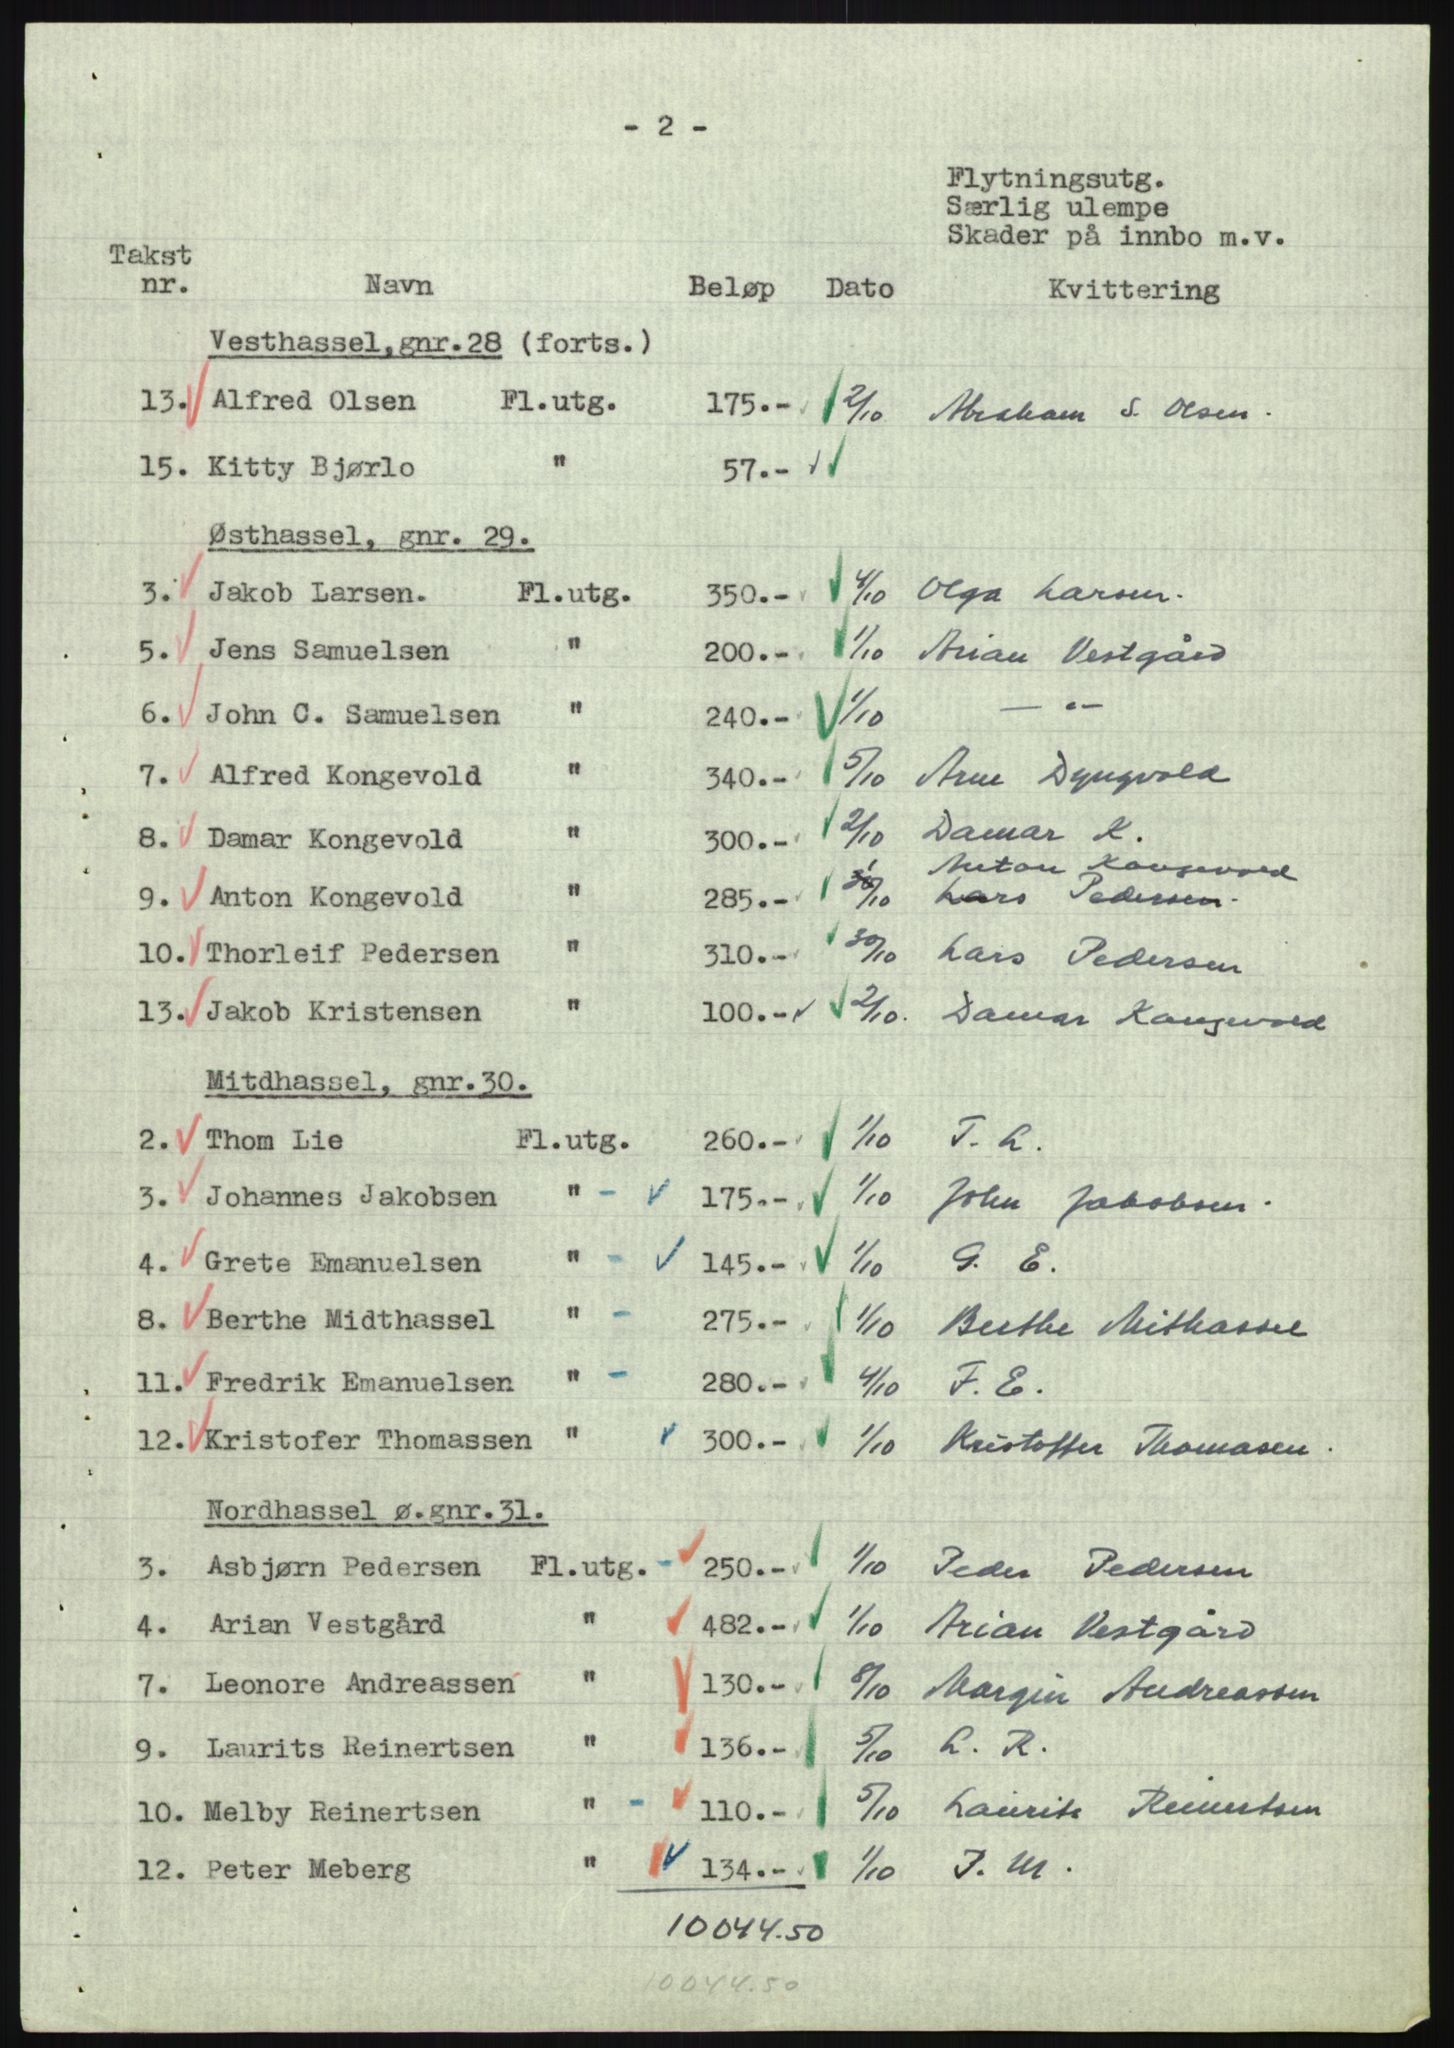 - 2 -
Flytningsutg.
Særlig ulempe
Skader på innbo m.v.
Takst nr. Navn Beløp Dato Kvittering
Vesthassel, gnr.28 (forts.)
13. Alfred Olsen Fl.utg. 175.- 2/10 Abraham S. Olsen.
15. Kitty Bjørlo " 57.-
Østhassel, gnr. 29.
3. Jakob Larsen. Fl.utg. 350.- 4/10 Olga Larsen.
5. Jens Samuelsen " 200.- 1/10 Arian Vestgård
6. John C. Samuelsen " 240.- 1/10 — " —
7. Alfred Kongevold " 340.- 5/10 Arne Dyngvold
8. Damar Kongevold " 300.- 2/10 Damar K.
Anton Kongevold
9. Anton Kongevold " 285.- 1/10 Lars Pedersen.
10. Thorleif Pedersen " 310.- 30/10 Lars Pedersen
13. Jakob Kristensen " 100.- 2/10. Damar Kongevold
Mitdhassel, gnr.30.
2. Thom Lie Fl.utg. 260.- 1/10 T. L.
3. Johannes Jakobsen " - 175.- 1/10 John Jakobsen.
4. Grete Emanuelsen " - 145.- 1/10 G. E.
8. Berthe Midthassel " - 275.- 1/10 Berthe Mithassel
11. Fredrik Emanuelsen " - 280.- 4/10 F. E.
12. Kristofer Thomassen " 300.- 1/10 Kristoffer Thomasen.
Nordhassel ø.gnr.31.
3. Asbjørn Pedersen Fl.utg. - 250.- 1/10 Peder Pedersen
4. Arian Vestgård " 482.- 1/10 Arian Vestgård
7. Leonore Andreassen " 130.- 8/10 Margin Andreassen
9. Laurits Reinertsen " 136.- 5/10 L. R.
10. Melby Reinertsen " - 110.- 5/10 Laurits Reinertsen
12. Peter Meberg " 134.- 1/10 P. M.
10044.50
10044.50